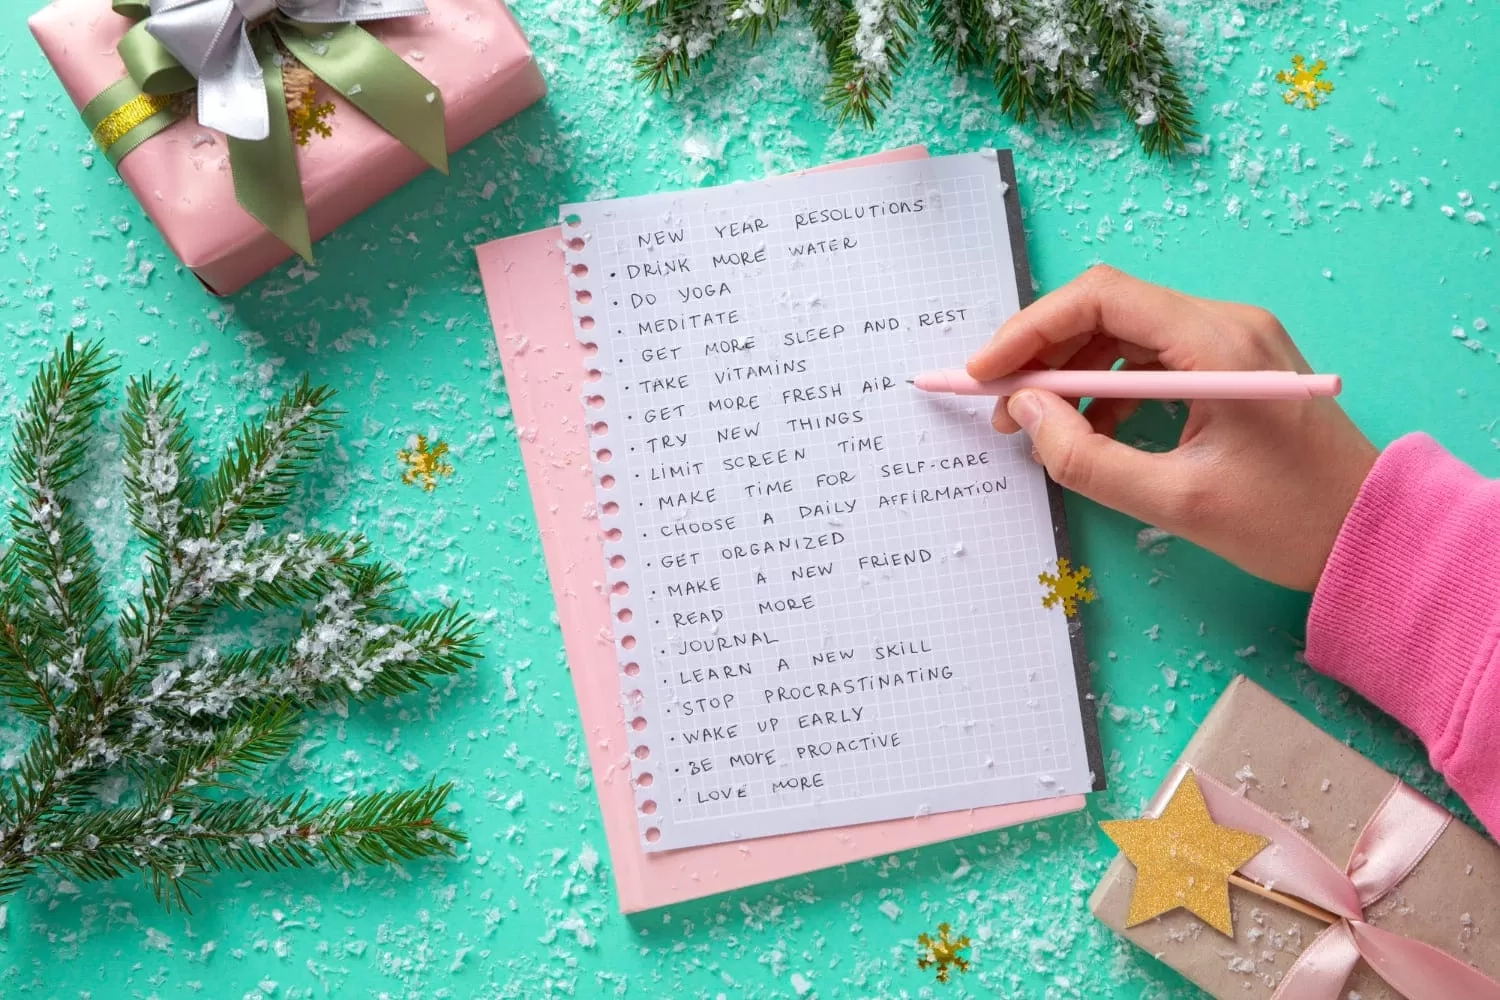 NEW YEAR RESOLUTIONS
• DRINK MORE WATER
• DO YOGA
• MEDITATE
• GET MORE SLEEP AND REST
• TAKE VITAMINS
• GET MORE FRESH AIR
• TRY NEW THINGS
• LIMIT SCREEN TIME
• MAKE TIME FOR SELF-CARE
• CHOOSE A DAILY AFFIRMATION
• GET ORGANIZED
• MAKE A NEW FRIEND
• READ MORE
• JOURNAL
• LEARN A NEW SKILL
• STOP PROCRASTINATING
• WAKE UP EARLY
• BE MORE PROACTIVE
• LOVE MORE